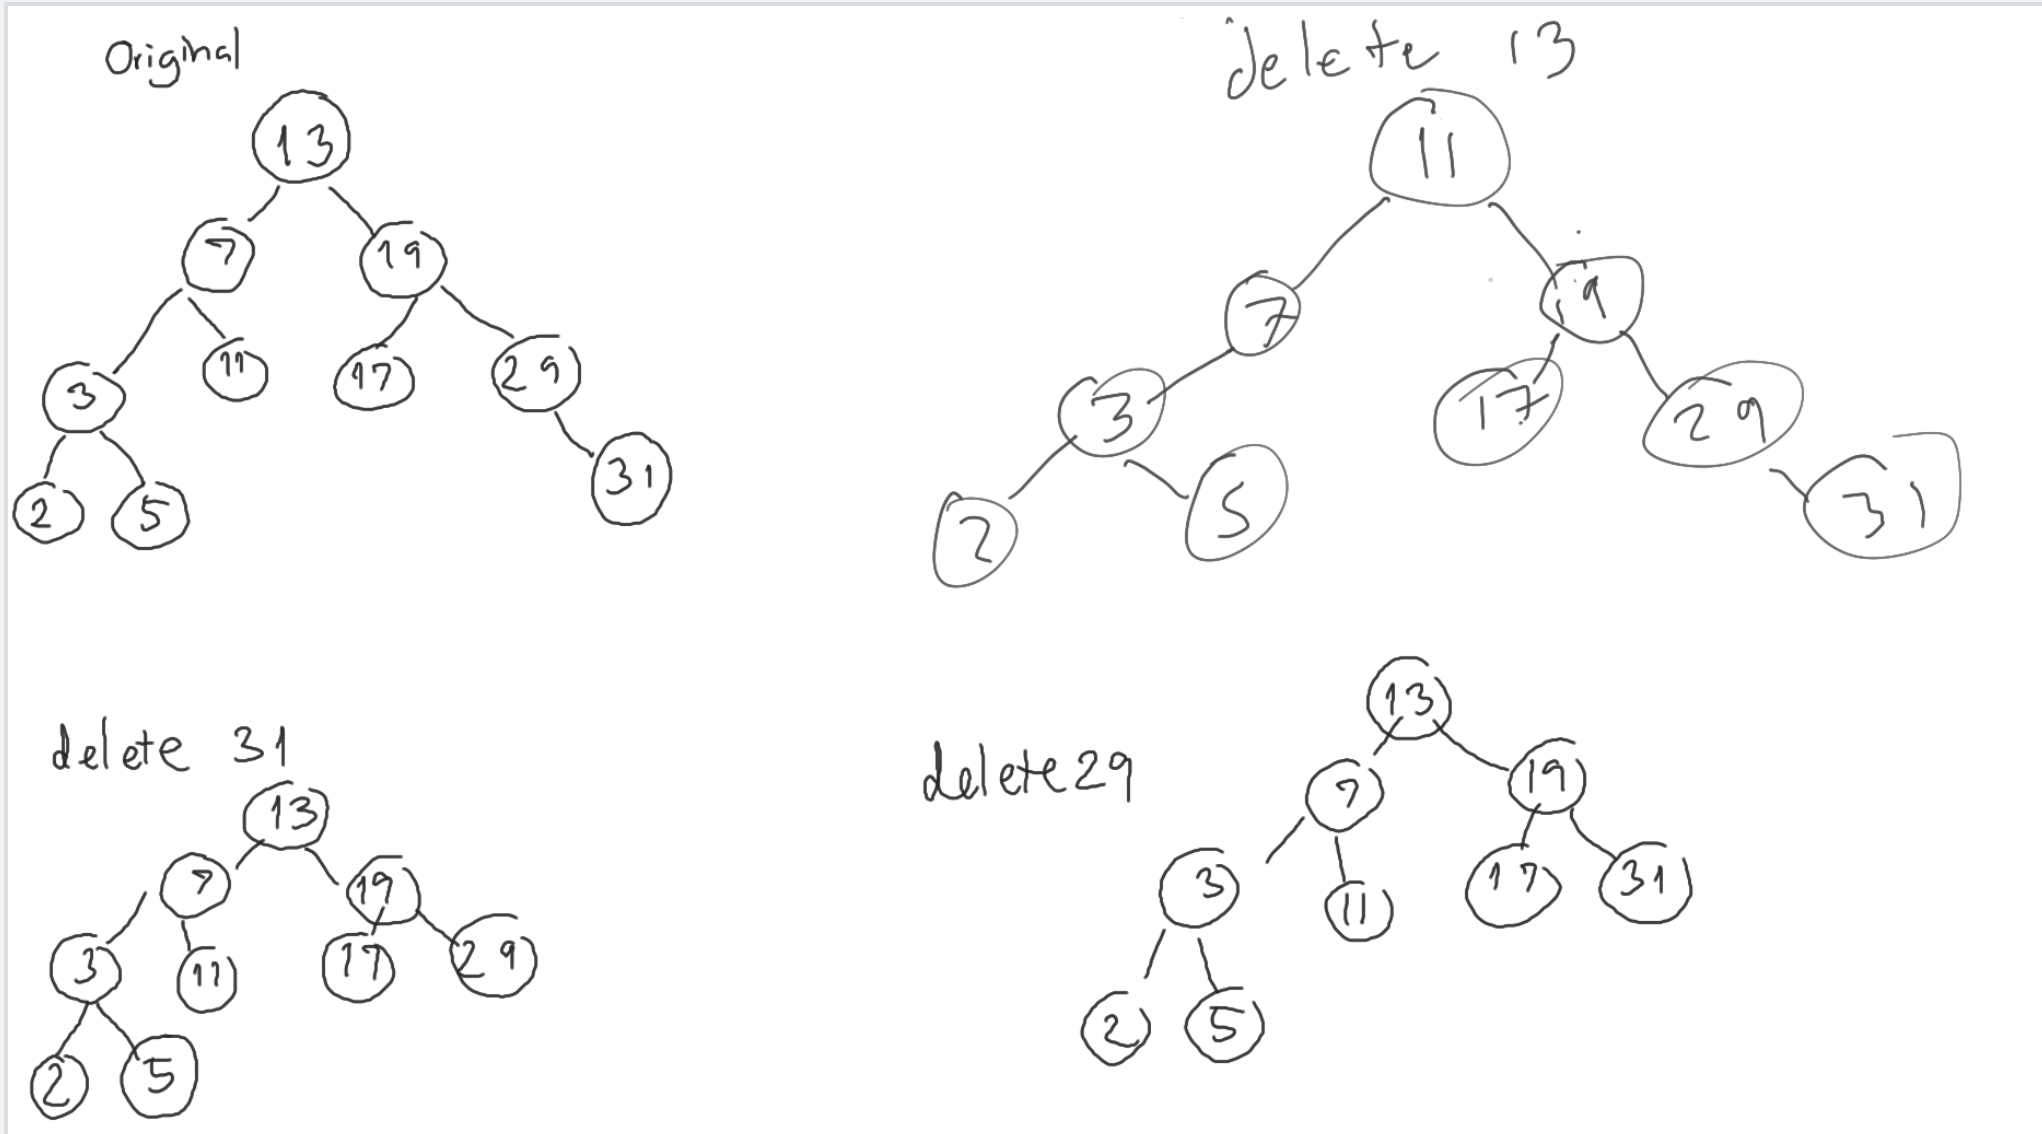 Original
13
7 19
3 11 17 29
2 5 31
delete 13
11
7 19
3 17 29
2 5 31
delete 31
13
7 19
3 11 17 29
2 5
delete 29
13
7 19
3 11 17 31
2 5